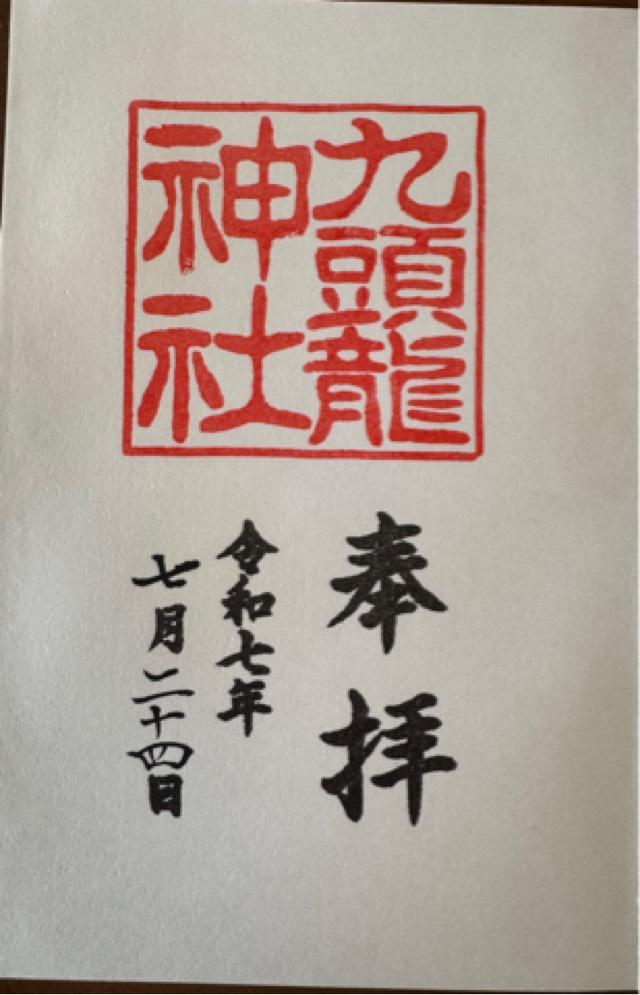 九頭龍
神社
奉拝
令和七年
七月二十四日